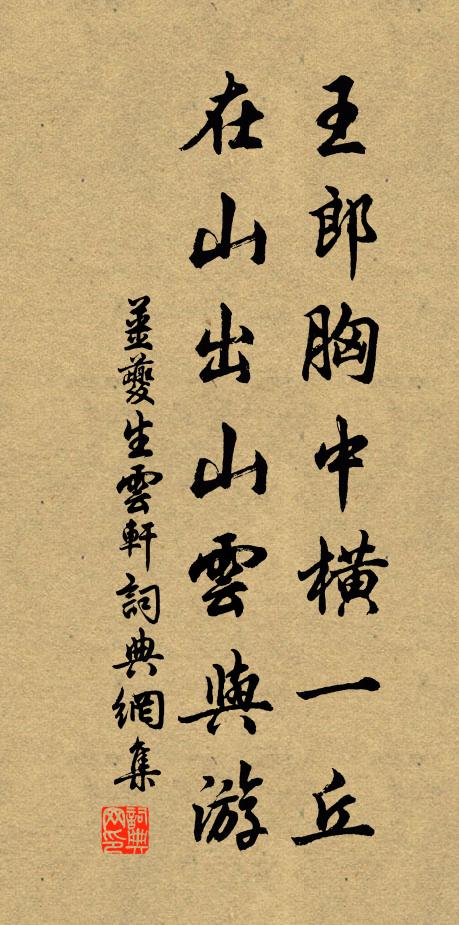 王郎胸中橫一丘
在山出山雲與游
姜夔生雲軒詞典網集
詞典
网印